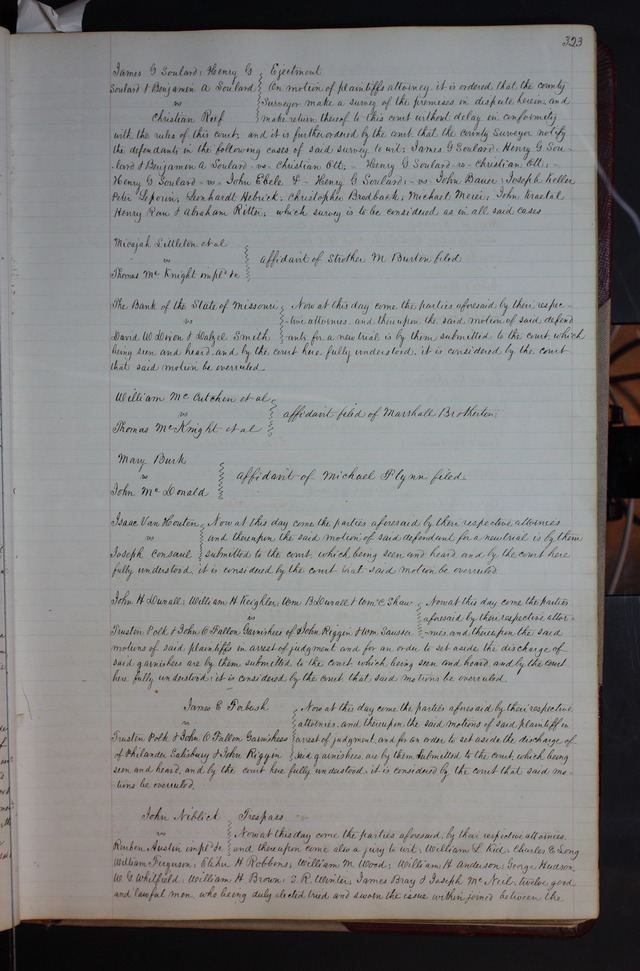 323
James G Soulard, Henry G } Ejectment
Soulard & Benjamin A Soulard } On motion of plaintiffs attorney it is ordered that the county
vs } Surveyor make a survey of the premises in dispute herein, and
Christian Roef } make return thereof to this court without delay in conformity
with the rules of this court, and it is further ordered by the court that the county Surveyor notify
the defendants in the following cases of said survey to wit; James G Soulard, Henry G Sou-
lard & Benjamin A Soulard -vs- Christian Ott; - Henry G Soulard -vs- Christian Ott; -
Henry G Soulard -vs- John Ebele & - Henry G Soulard; -vs- John Bauer, Joseph
Peter Leporin; Leonhardt Hebrick, Christopher Brodback, Michael Meier, John
Henry Rau & Abraham Ritter; which survey is to be considered as in all said cases
Micajah Littleton et al
vs } affidavit of Strother M Burton filed
Thomas Mc Knight impld &c
The Bank of the State of Missouri } Now at this day come the parties aforesaid by their respec-
vs } -tive attornies, and thereupon the said motion of said defend
David W Dixon & Dalzel Smith } -ants for a new trial is by them submitted to the court, which
being seen and heard, and by the court here fully understood, it is considered by the court
that said motion be overruled
William Mc Cutchen et al
vs } affidavit filed of Marshall Brotherton
Thomas Mc Knight et al
Mary Burk
vs } affidavit of Michael Flynn filed
John Mc Donald
Isaac Van Houten } Now at this day come the parties aforesaid by their respective attornies
vs } and thereupon the said motion of said defendant for a new trial is by them
Joseph Consaul } submitted to the court, which being seen and heard, and by the court here
fully understood, it is considered by the court that said motion be overruled
John H Duvall, William H Keighler, Wm B Duvall & Wm C Shaw } Now at this day come the parties
vs } aforesaid by their respective attor-
Trusten Polk & John O Fallon Garnishees of John Riggin & Wm Sausser } -nies, and thereupon the said
motions of said plaintiffs in arrest of judgment and for an order to set aside the discharge of
said garnishees are by them submitted to the court which being seen and heard and by the court
here fully understood, it is considered by the court that said motions be overruled
James E Forbush } Now at this day come the parties aforesaid by their respective
vs } attornies, and thereupon the said motions of said plaintiff in
Trusten Polk & John O Fallon Garnishees } arrest of judgment, and for an order to set aside the discharge of
of Philander Salisbury & John Riggin } said garnishees, are by them submitted to the court, which being
seen and heard, and by the court here fully understood, it is considered by the court that said mo-
tions be overruled
John Niblick } Trespass
vs } Now at this day come the parties aforesaid, by their respective attornies
Reuben Austin impld &c } and thereupon come also a jury to wit, William L Kid; Charles E Long
William Ferguson; Elihu H Robbons; William M Wood; William H Anderson; George Hudson
W G Whitfield; William H Brown; S. R. Winter; James Bray & Joseph Mc Neil, twelve good
and lawful men, who being duly elected tried and sworn the issue within joined between the